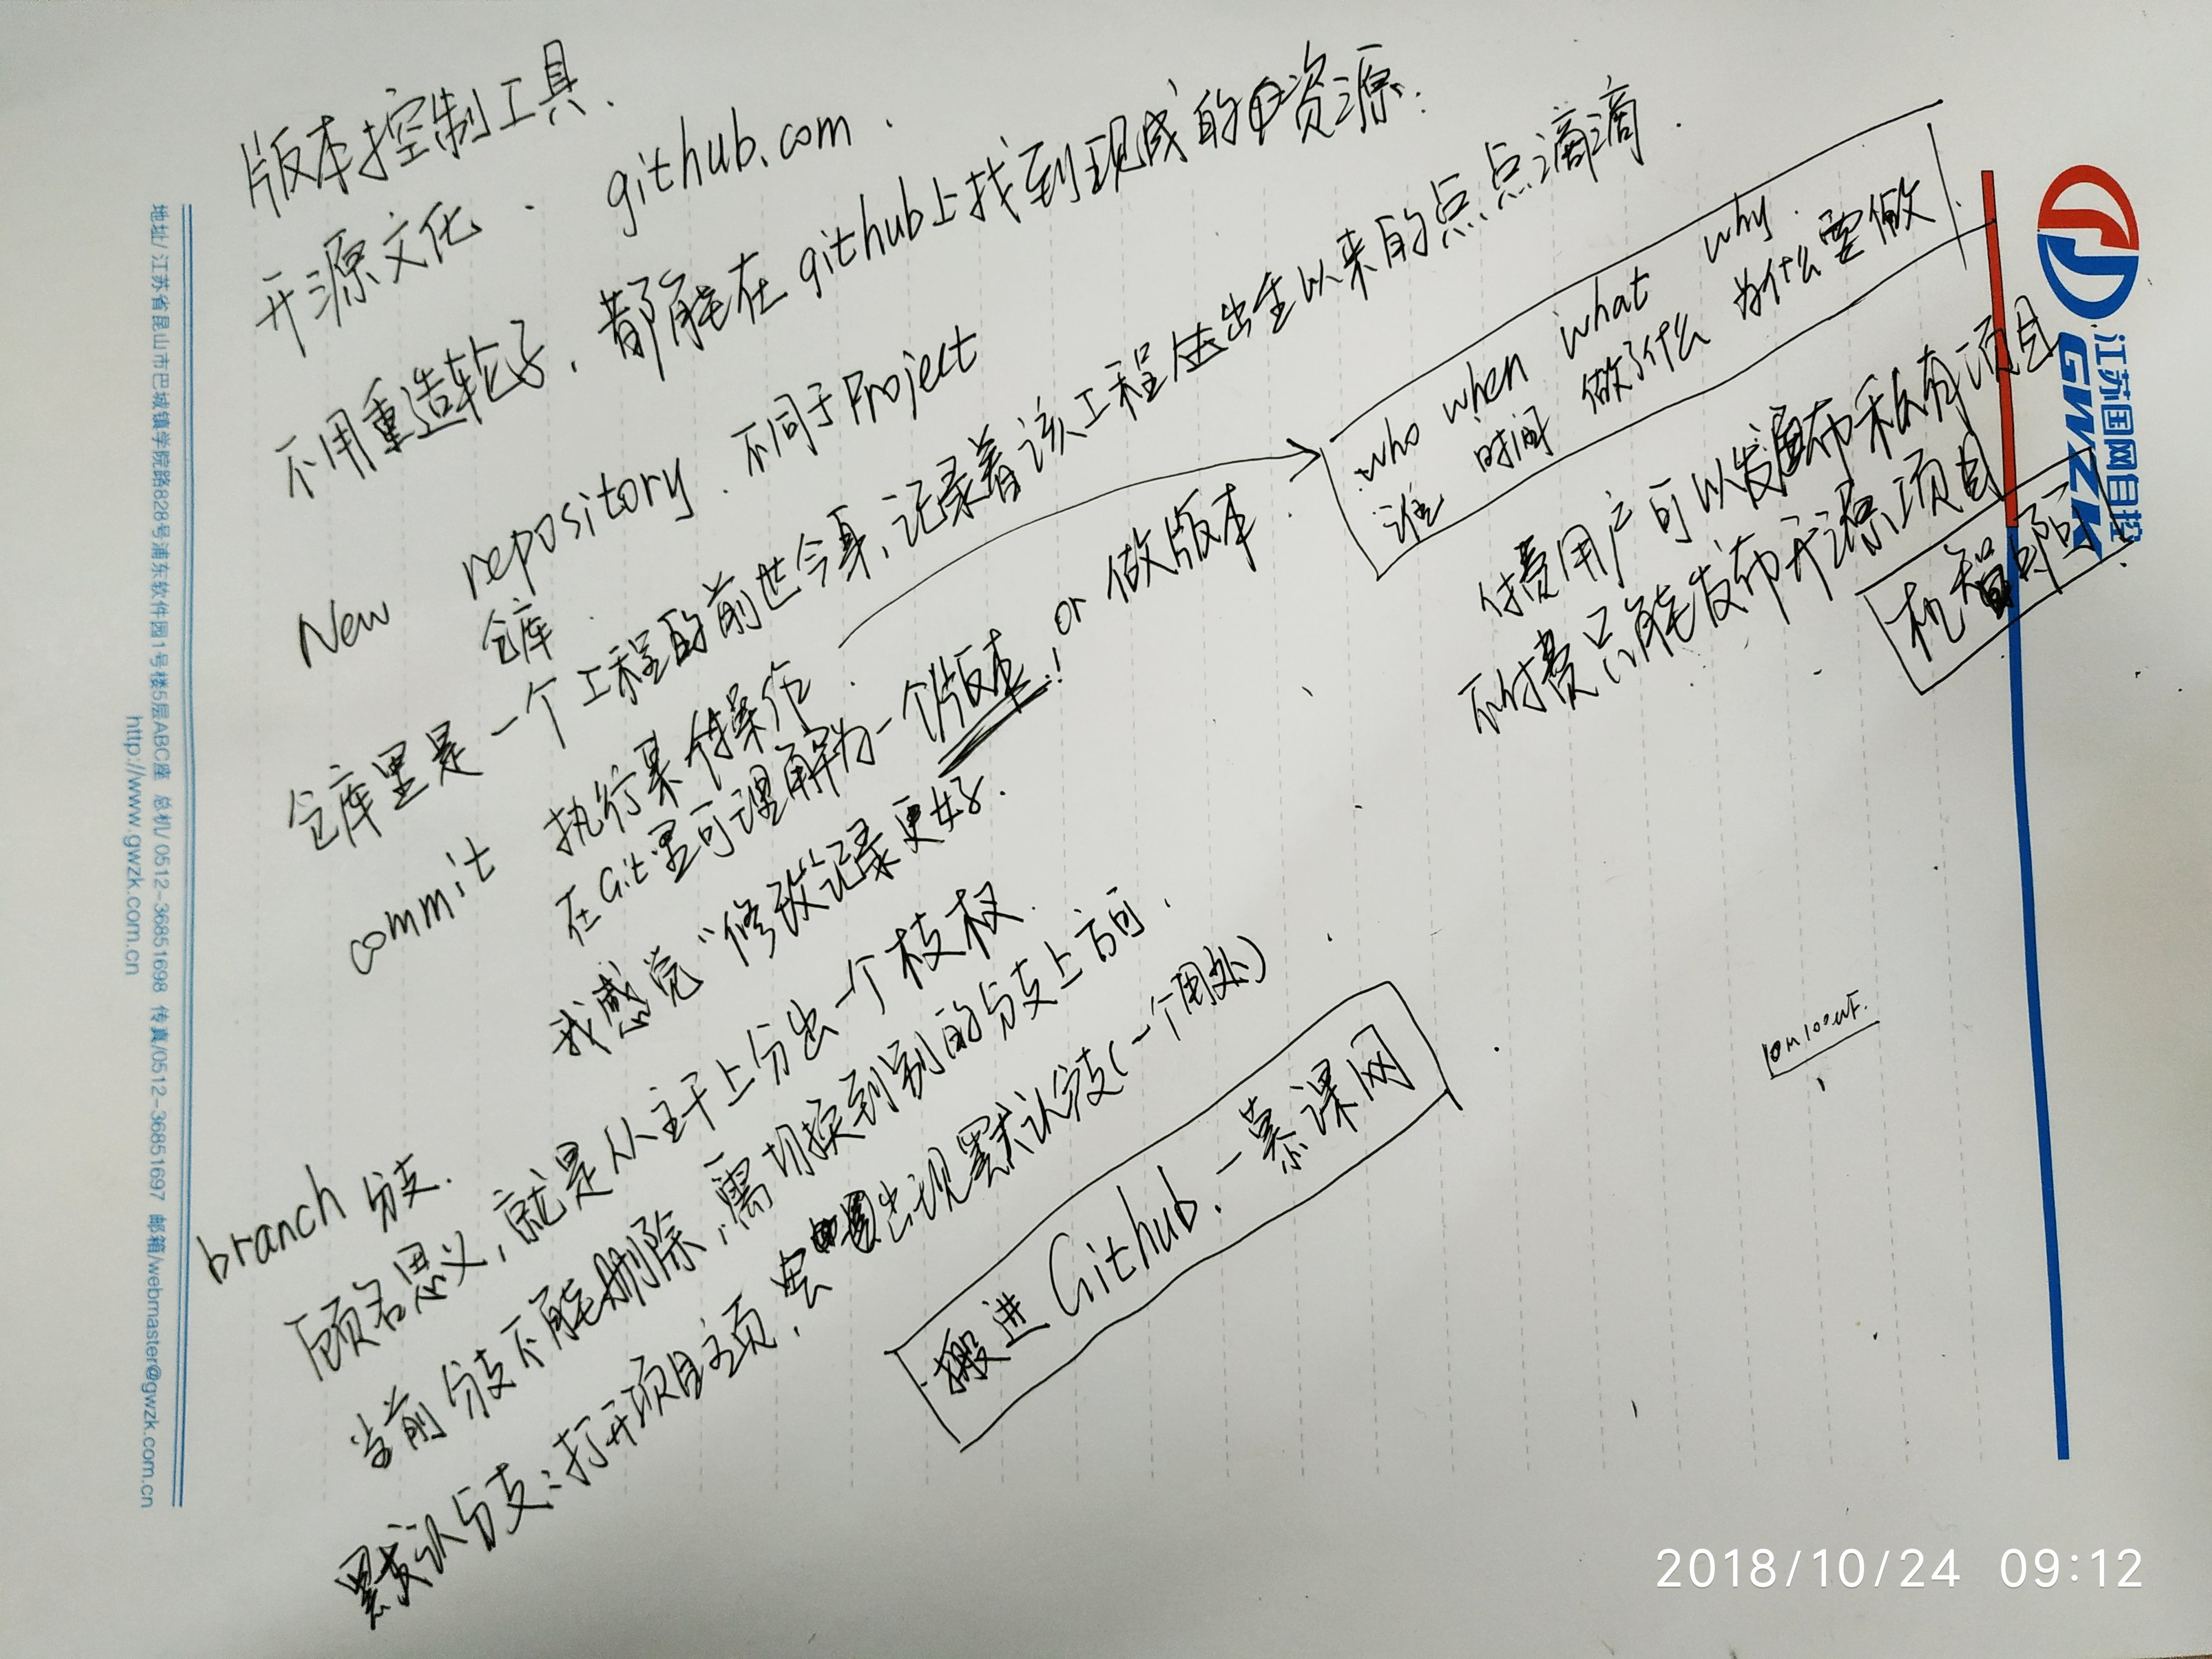 版本控制工具.
开源文化. github.com.
不用重造轮子, 都能在github上找到现成的资源.
New repository. 不同于Project
仓库.
仓库里是一个工程的前世今身, 记录着该工程出生以来的点点滴滴.
commit 执行某件操作.
在Git里可理解为一个版本! or 做版本.
我感觉“修改记录更好.
who when what why.
谁 时间 做了什么 为什么要做
付费用户可以发布私有项目
不付费只能发布开源项目
branch 分支.
顾名思义, 就是从主干上分出一个枝杈.
当前分支不能删除, 需切换到别的分支上方可.
默认分支: 打开项目主页, 会出现默认分支(一个用处)
搬进Github. - 慕课网
江苏国网自控
GWZK
地址/ 江苏省昆山市巴城镇学院路828号浦东软件园1号楼5层ABC座 总机/ 0512-36851698 传真/0512-36851697 邮箱/webmaster@gwzk.com.cn
http://www.gwzk.com.cn
2018/10/24 09:12